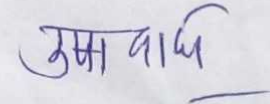 उमा वार्ष